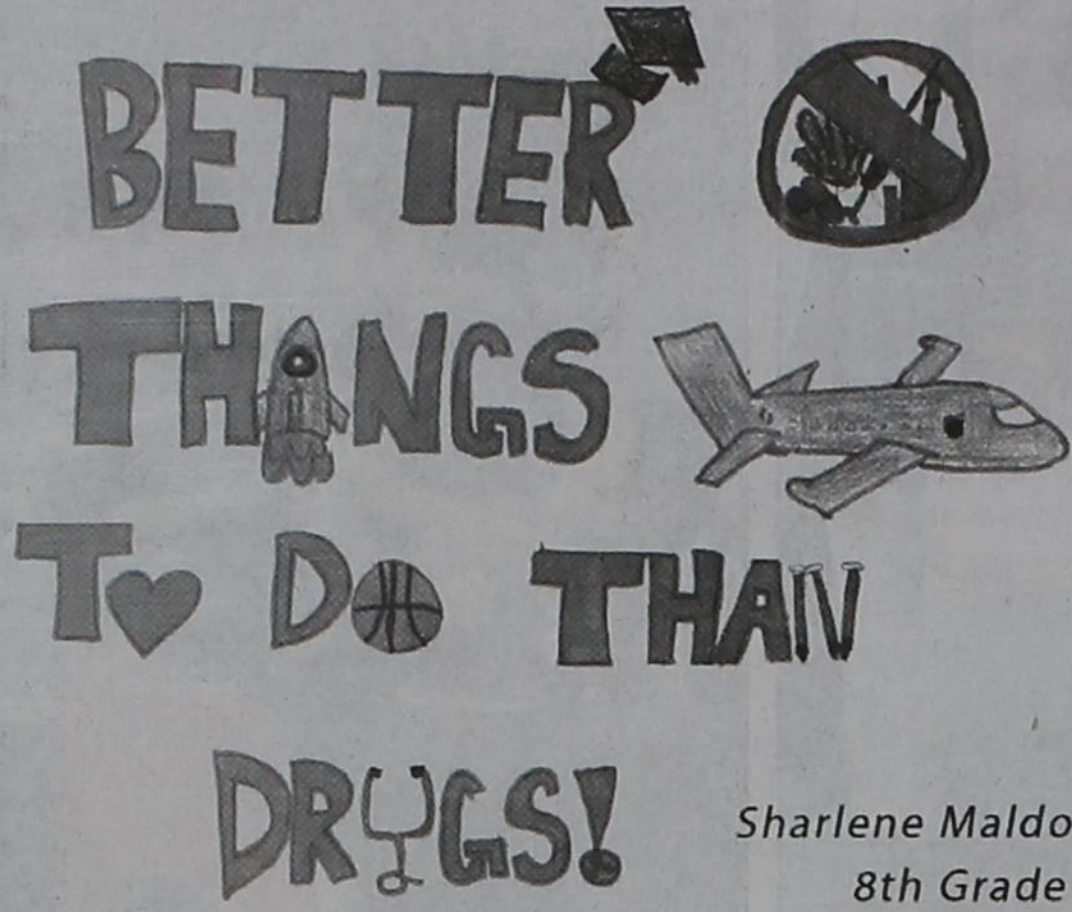 BETTER
THINGS
TO DO THAN
DRUGS!
Sharlene Maldo
8th Grade